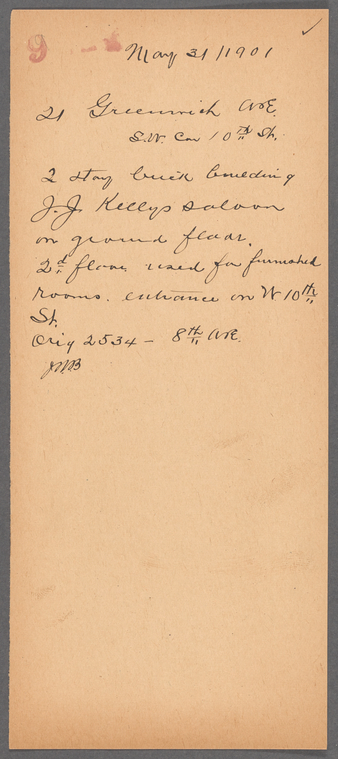 9
May 31/1901
21 Greenwich Ave.
S.W. Cor 10th St.
2 story brick building
J.J. Kellys saloon
on ground floor.
2d floor used for furnished
rooms. entrance on W 10th
St.
Orig 2534 - 8th Ave.